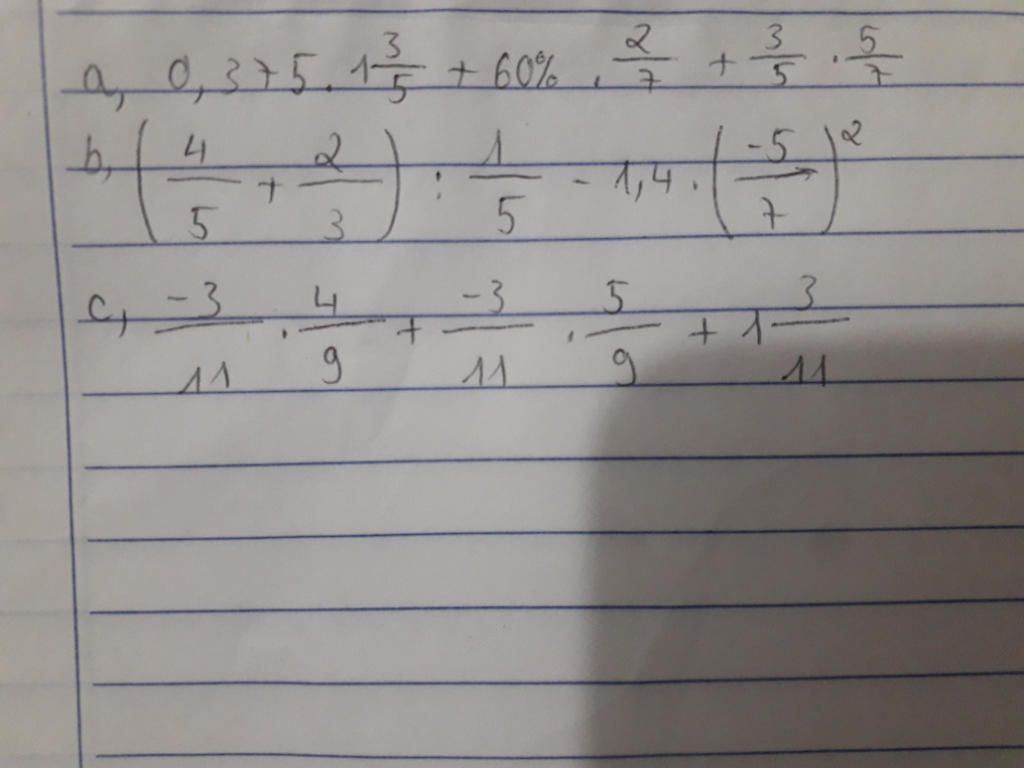 a, 0,375 . 1 3/5 + 60% . 2/7 + 3/5 . 5/7
b, (4/5 + 2/3) : 1/5 - 1,4 . (-5/7)²
c, -3/11 . 4/9 + -3/11 . 5/9 + 1 3/11